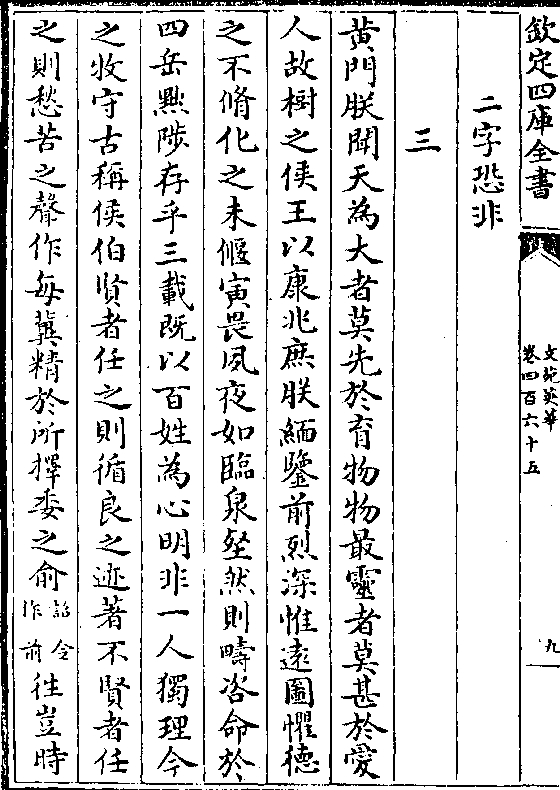 欽定四庫全書
文苑英華
卷四百六十五
九
二字恐非
三
黃門朕聞天為大者莫先於育物物最靈者莫甚於愛
人故樹之侯王以康兆庶朕緬鑒前烈深惟遠圖懼德
之不脩化之未偃寅畏夙夜如臨泉壑然則疇咨命於
四岳黜陟存乎三載既以百姓為心明非一人獨理今
之牧守古稱侯伯賢者任之則循良之迹著不賢者任
之則愁苦之聲作每冀精於所擇委之俞詔令作前往豈時